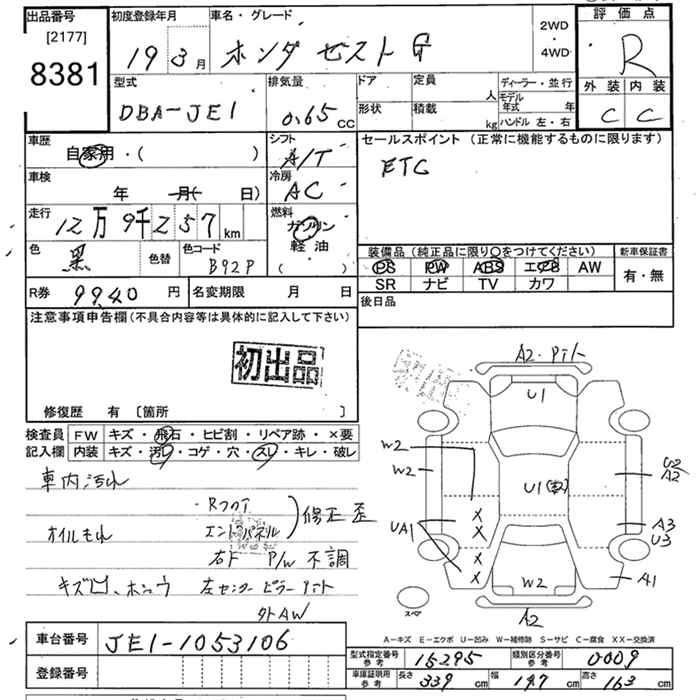 出品番号
[2177]
8381
初度登録年月
19 3月
車名・グレード
ホンダ ゼスト G
2WD
・
4WD
評価点
R
外装 内装
C C
型式
DBA-JE1
排気量
0.65 CC
ドア
定員
人
形状
積載
kg
ディーラー・並行
モデル年式 年
ハンドル 左・右
車歴
自家用・( )
シフト
A/T
セールスポイント (正常に機能するものに限ります)
ETC
車検
年 月( 日)
冷房
AC
走行
12万9千257km
燃料
ガソリン
軽油
( )
色
黒
色替
色コード
B92P
装備品 (純正品に限り○をつけてください)
新車保証書
PS PW ABS エアB AW
有・無
SR ナビ TV カワ
R券 9940 円
名変期限 月 日
後日品
注意事項申告欄(不具合内容等は具体的に記入して下さい)
初出品
修復歴 有 〔箇所 〕
検査員
記入欄
FW キズ・飛石・ヒビ割・リペア跡・×要
内装 キズ・汚レ・コゲ・穴・スレ・キレ・破レ
車内汚れ
オイルもれ
エンドパネル
修正歪
右F P/W 不調
左センターピラー
外AW
A2
U1
W2
W2
U2
A2
U1
X
X
UA1
X
X
A3
U3
A1
W2
A2
スペア
A-キズ E-エクボ U-凹み W-補修跡 S-サビ C-腐食 XX-交換済
車台番号 JE1-1053106
登録番号
型式指定番号
参考
15295
類別区分番号
参考
0009
車庫証明用
参考
長さ 339 cm
幅 147 cm
高さ 163 cm